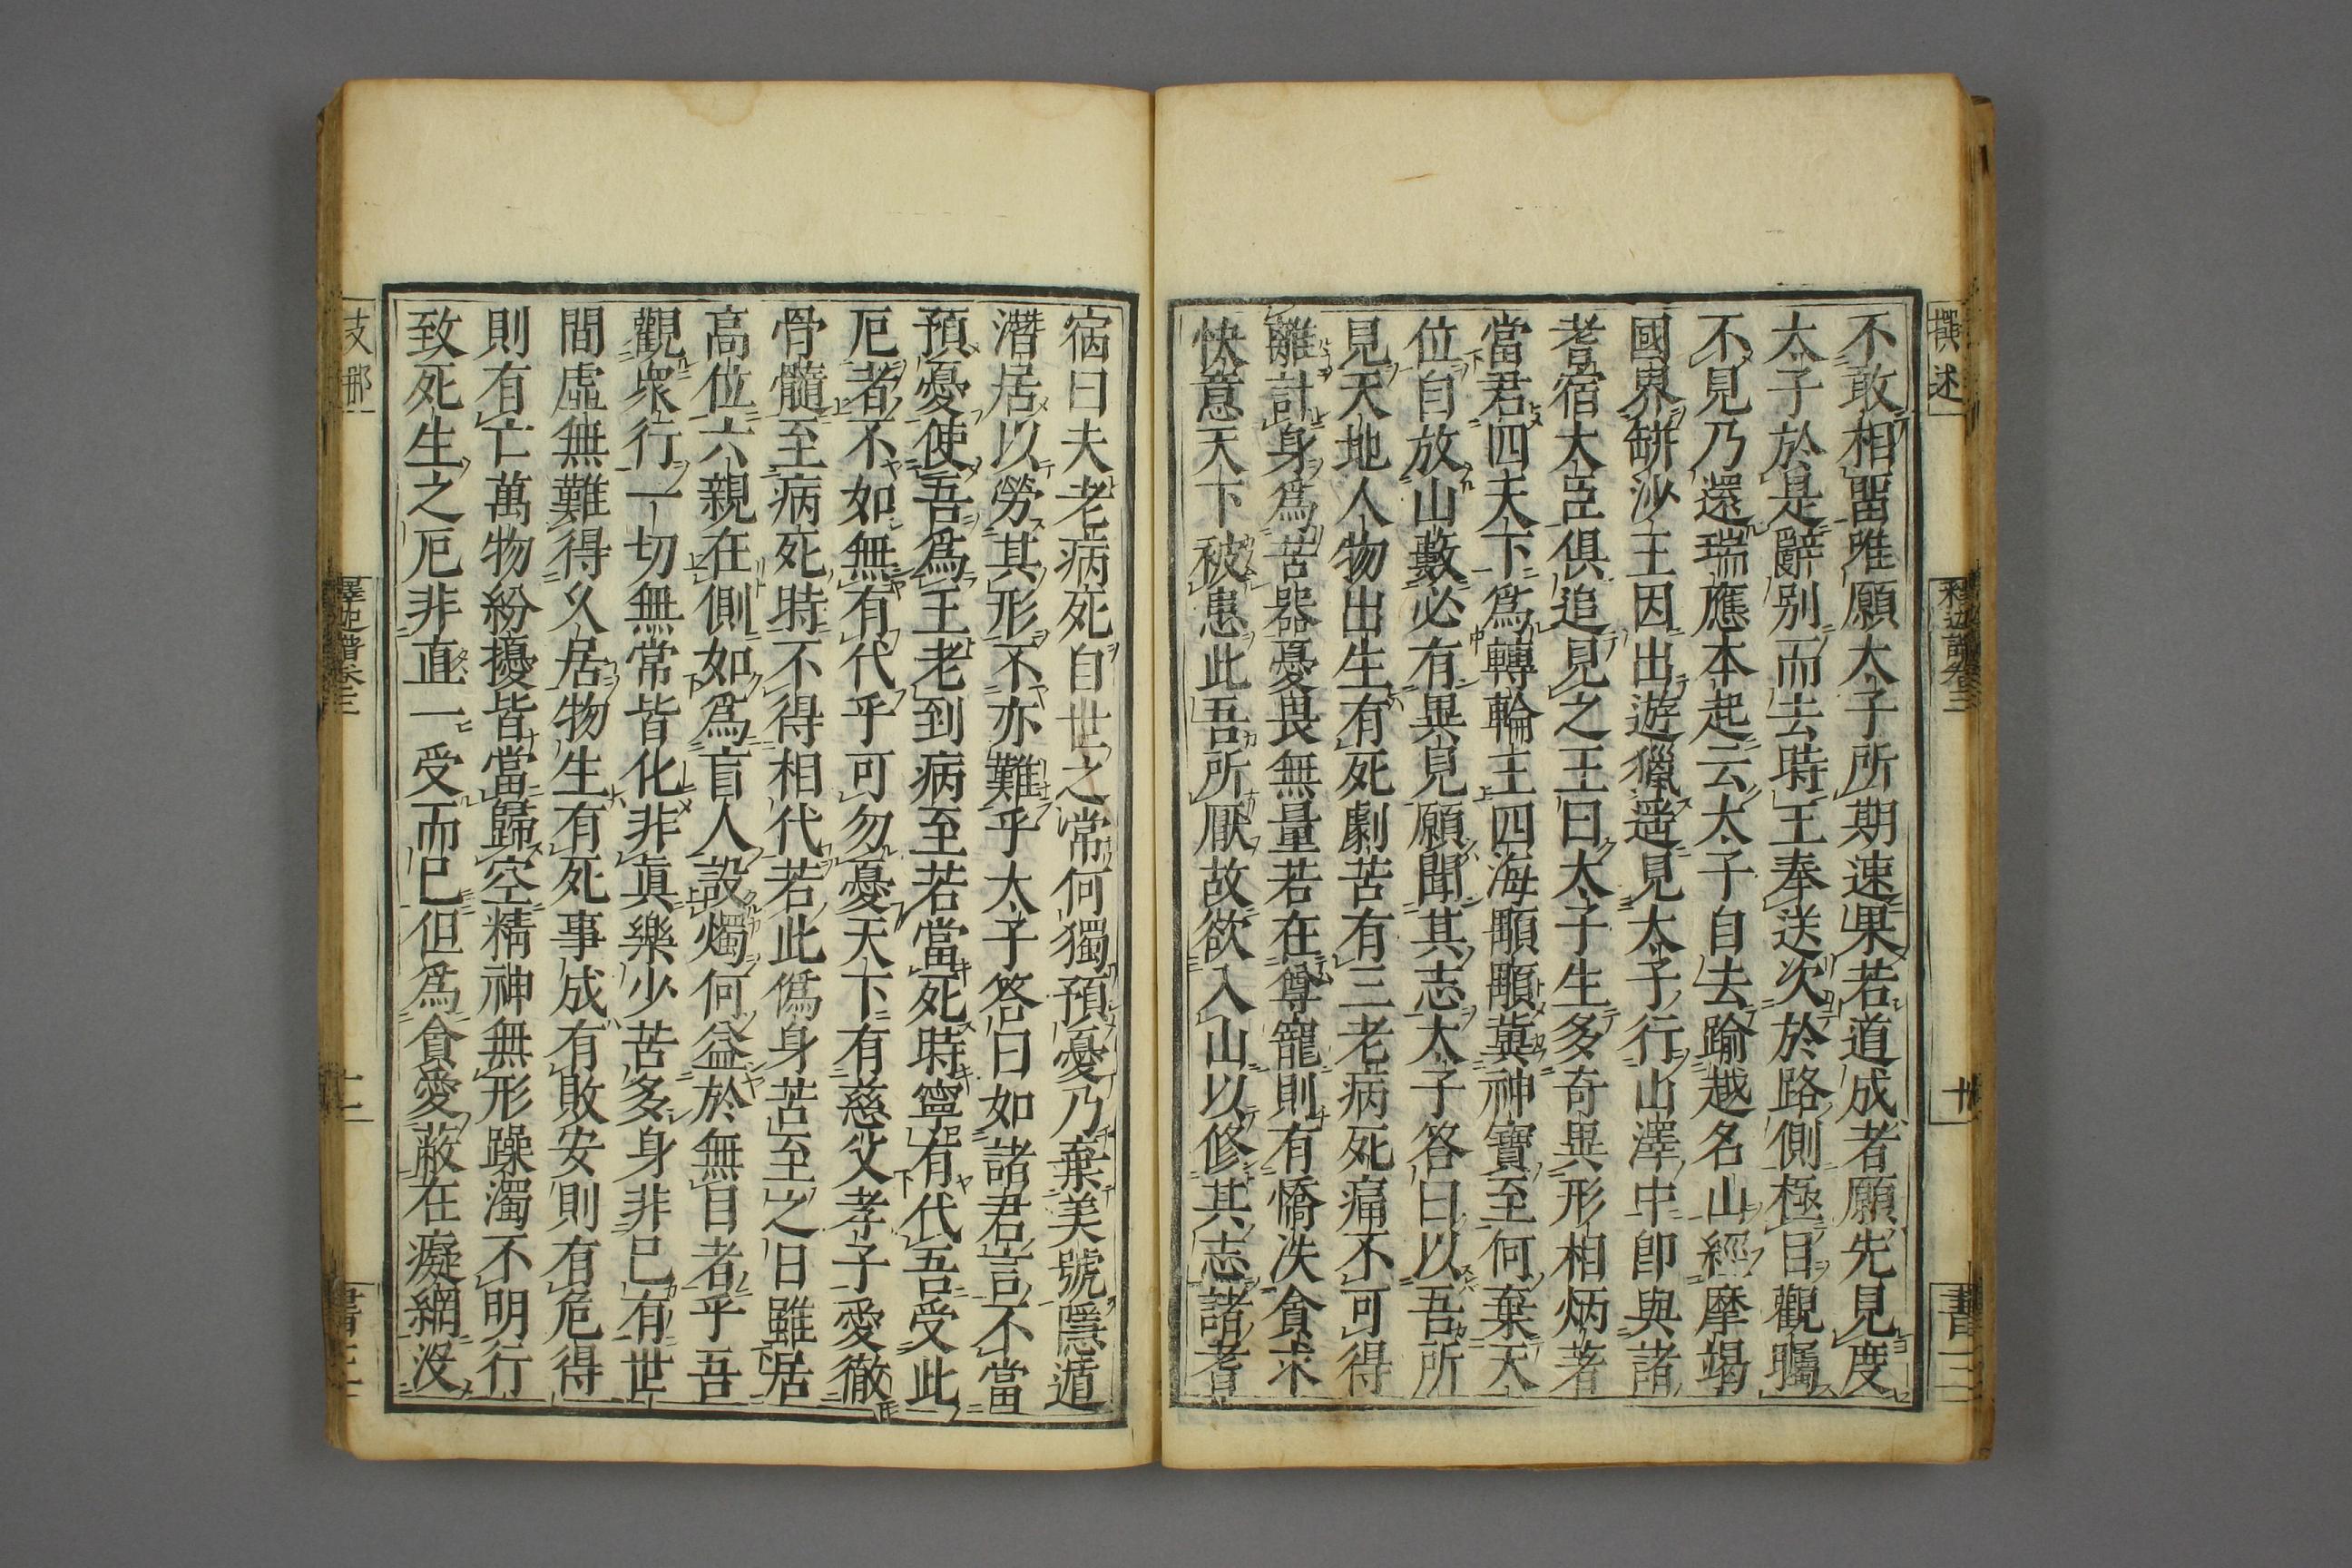 撰述
釋迦譜卷三
十
書三
不敢相畱唯願太子所期速果若道成者願先見度
太子於是辭別而去時王奉送次於路側極目觀矚
不見乃還瑞應本起云太子自去踰越名山經摩竭
國界缾沙王因出遊獵遥見太子行山澤中卽與諸
耆宿大臣俱追見之王曰太子生多奇異形相炳著
當君四天下爲轉輪王四海顒顒冀神寶至何棄天
位自放山藪必有異見願聞其志太子答曰以吾所
見天地人物出生有死劇苦有三老病死痛不可得
離計身爲苦器憂畏無量若在尊寵則有憍泆貪求
快意天下被患此吾所厭故欲入山以修其志諸耆
宿曰夫老病死自世之常何獨預憂乃棄美號隱遁
潛居以勞其形不亦難乎太子答曰如諸君言不當
預憂使吾爲王老到病至若當死時寧有代吾受此
厄者不如無有代乎可勿憂天下有慈父孝子愛徹
骨髓至病死時不得相代若此僞身苦至之日雖居
高位六親在側如爲盲人設燭何益於無目者乎吾
觀衆行一切無常皆化非眞樂少苦多身非已有世
間虛無難得久居物生有死事成有敗安則有危得
則有亡萬物紛擾皆當歸空精神無形躁濁不明行
致死生之厄非直一受而已但爲貪愛蔽在癡網沒
支那
釋迦譜卷三
十一
書三